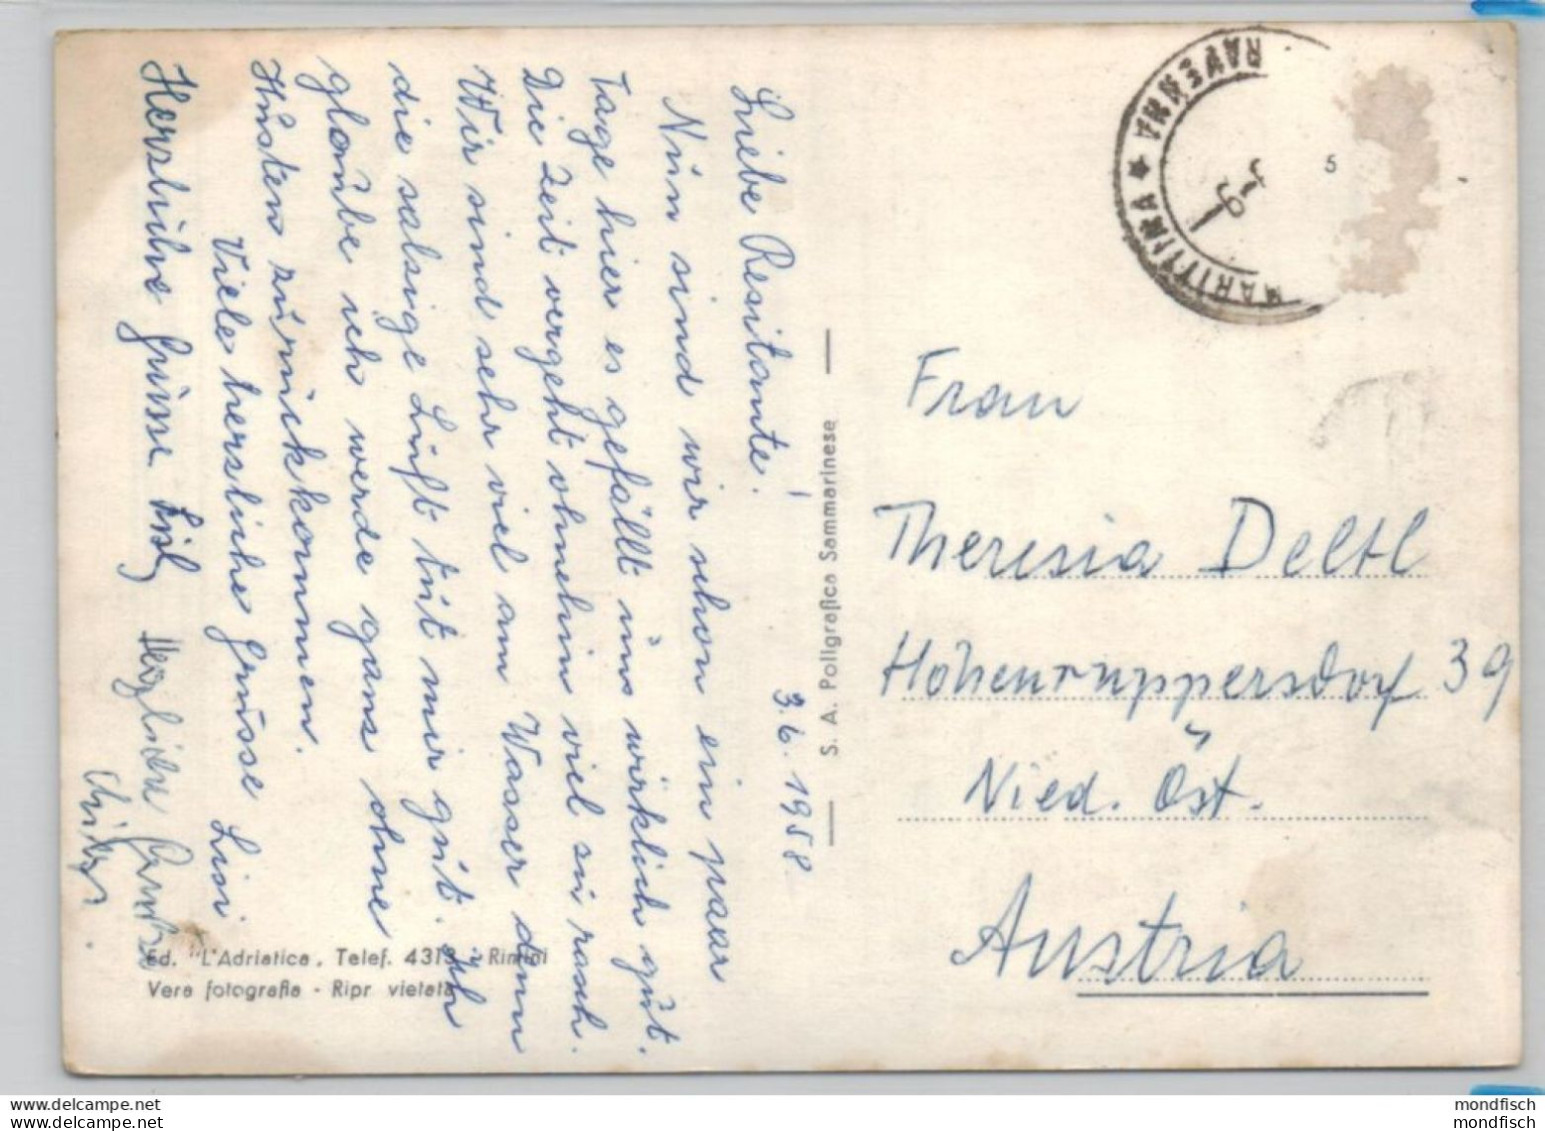 Liebe Resitante!
3.6.1958
Nun sind wir schon ein paar
Tage hier es gefällt uns wirklich gut.
Die Zeit vergeht ohnehin viel zu rasch.
Wir sind sehr viel am Wasser denn
die salzige Luft tut mir gut. Ich
glaube ich werde ganz ohne
Husten zurückkommen.
Viele herzliche Grüsse Lisi
Herzliche Grüsse
Herzliche
S. A. Poligrafica Sammarinese
Ed. "L'Adriatica, Telef. 4313 - Rimini
Vera fotografia - Ripr vietata
MARITTIMA ★ RAVENNA
5
Frau
Theresia Deltl
Hohenruppersdorf 39
Nied. Öst.
Austria
mondfisch
mondfisch
delcampe.net
delcampe.net